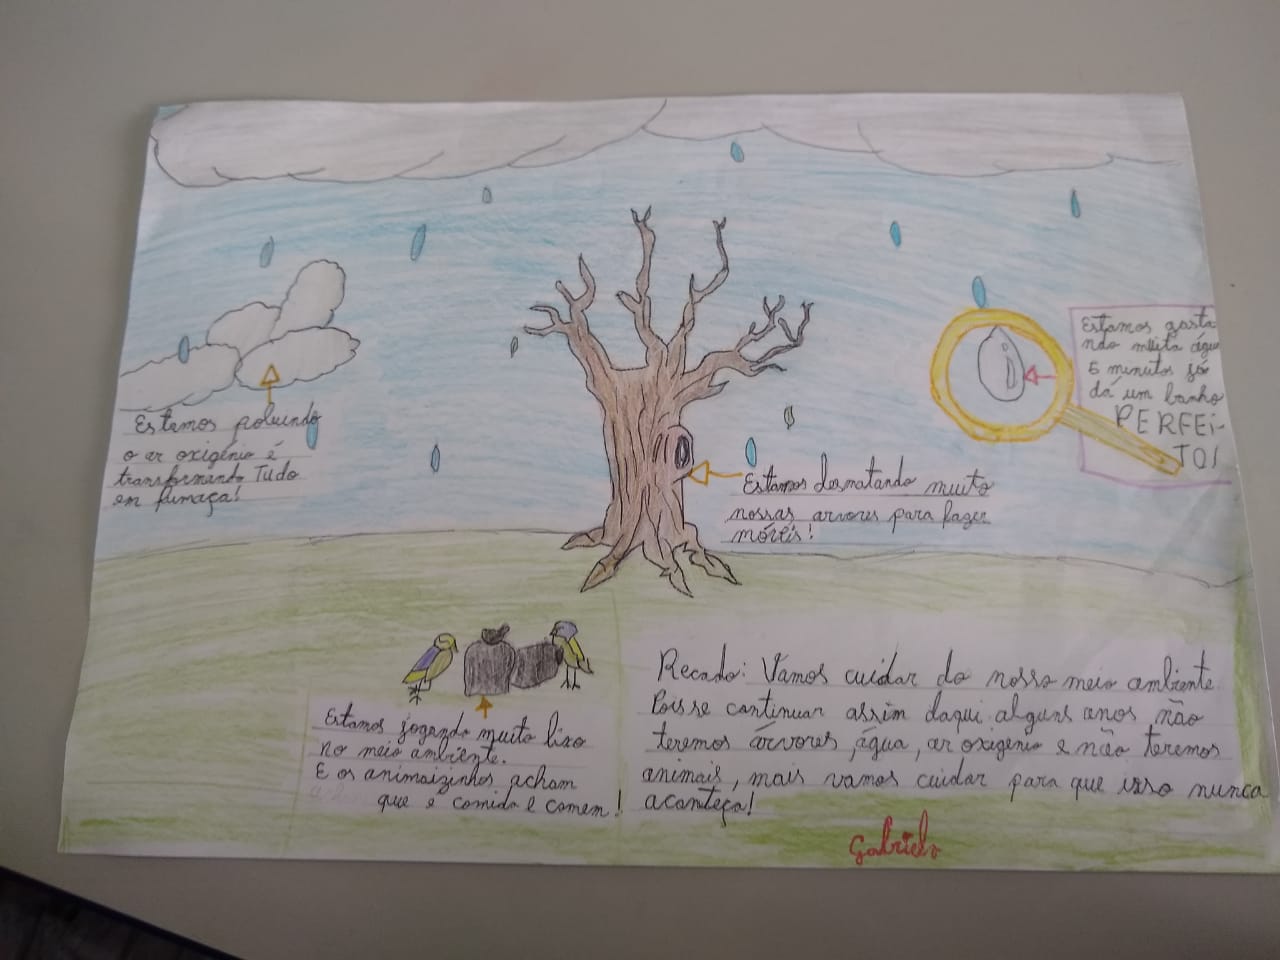 Estamos poluindo
o ar oxigênio é
transformando Tudo
em fumaça!
Estamos gasta
ndo muita água
5 minutos já
dá um banho
PERFEI-
TO!
Estamos desmatando muito
nossas arvores para fazer
móveis!
Estamos jogando muito lixo
no meio ambiente.
E os animaizinhos acham
que é comida e comem!
Recado: Vamos cuidar do nosso meio ambiente.
Pois se continuar assim daqui alguns anos não
teremos árvores, água, ar oxigênio e não teremos
animais, mais vamos cuidar para que isso nunca
aconteça!